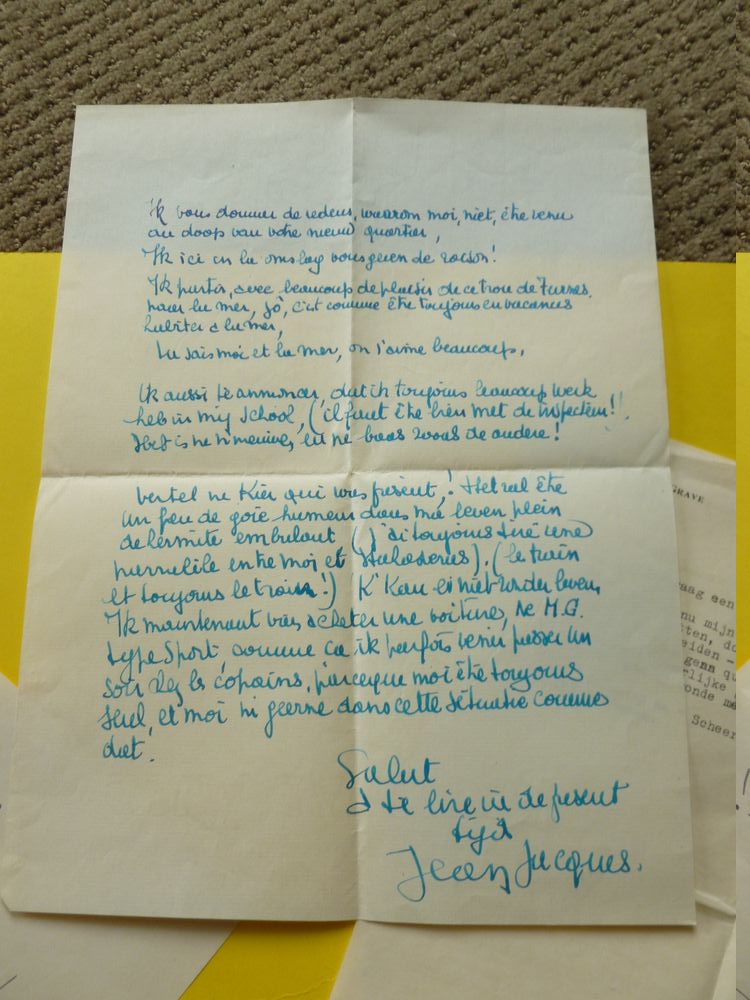 Ik vous donner de redens, waarom moi, niet, être venu
au doop van votre nieuw quartier,
Ik ici en la omslag vous geven de raeson!
Ik partir, avec beaucoup de plaisir de ce trou de Furnes.
naar la mer, jô, c'est comme être toujours en vacances
habiter à la mer,
tu sais moi et la mer, on s'aime beaucoup.
Ik aussi te annoncer, dat ik toujours beaucoup werk
heb in my school, (il faut être bien met de inspecteur!!
Het is ne n'mauvve, en ne baas zoals de andere!
Vertel ne Kier qui vous présent,! Het zal être
un peu de goie humeur dans ma leven plein
de hermite ambulant (j'ai toujours tiré une
parallèle entre moi et ), (le train
et toujours le train!) K' Kan ei niet zonder leven,
Ik maintenant vais acheter une voiture, Ne M.G.
type Sport, comme ça ik parfois venir passer un
soir chez les copains, parceque moi être toujours
seul, et moi ni geerne dans cette situatie comme
dat.
Salut
à te lire in de present
tyd
Jean Jacques.
GRAVE
aag een
nu mijn
tten, do
eiden -
genn qu
rlijke
onde me
Scheer